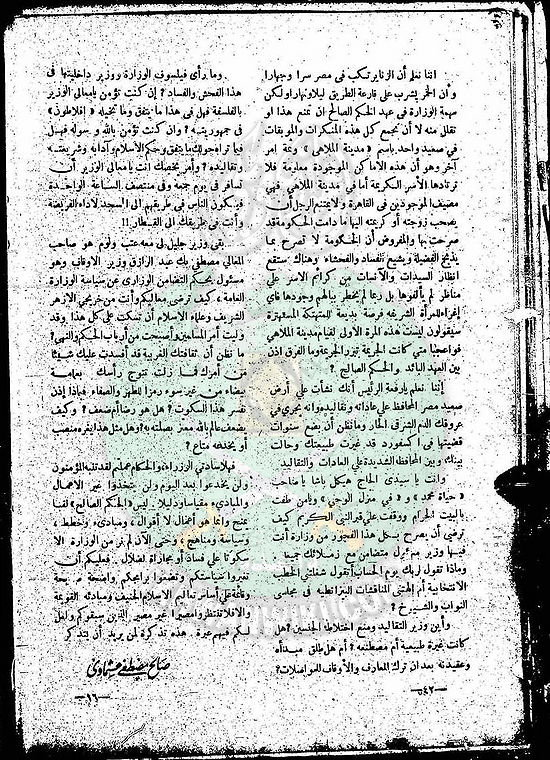 اننا نعلم أن الزنا يرتكب فى مصر سرا وجهارا
وأن الخمر يشرب على قارعة الطريق ليلا ونهارا ولكن
مهمة الوزارة فى عهد الحكم الصالح ان تمنع هذا او
تقلل منه لا أن تجمع كل هذه المنكرات والموبقات
فى صعيد واحد باسم « مدينة الملاهى » وثمة امر
آخر وهو أن هذه الاماكن الموجودة معلومة فلا
ترتادها الأسر الكريمة أما فى مدينة الملاهى فهى
مصيف الموجودين فى القاهرة ولا يمتنع الرجل أن
يصحب زوجته أو كريمته اليها ما دامت الحكومة قد
صرحت بها والمفروض أن الحكومة لا تصرح بما
يذبح الفضيلة ويشيع الفساد والفحشاء وهناك ستقع
انظار السيدات والآنسات من كرائم الاسر على
مناظر لم يألفوها بل ربما لم يخطر ببالهم وجودها فأى
إغراء للمرأة الشريفة فرصة بديعة للمتهتكة المستهترة
سيقولون ليست هذه المرة الاولى لقيام مدينة الملاهى
فواعجبا متى كانت الجريمة تبرر الجريمة وما الفرق اذن
بين العهد البائد والحكم الصالح ؟
إننا نعلم يا رفعة الرئيس أنك نشأت على أرض
صعيد مصر المحافظ على عاداته وتقاليده وانه يجرى فى
عروقك الدم الشرقى الحار وما نظن أن بضع سنوات
قضيتها فى اكسفورد قد غيرت طبيعتك وحالت
بينك وبين المحافظة الشديدة على العادات والتقاليد.
وانت يا سيدى الحاج هيكل باشا يا صاحب
« حياة محمد » و « فى منزل الوحى » ويا من طفت
بالبيت الحرام ووقفت على قبر النبى الكريم كيف
ترضى أن يصرح بمثل هذا الفجور من وزارة أنت
فيها وزير مسئول متضامن مع زملائك جميعا
وماذا تقول لربك يوم الحساب أتقول شغلتنى الخطب
الانتخابية أم ألهتنى المناقشات البرلمانية فى مجلسى
النواب والشيوخ ؟
وأين وزير التقاليد ومنع اختلاطه الجنسين؟ هل
كانت غيرة طبيعية أم مصطنعة؟ أم هل طلق مبدأه
وعقيدته بعد ان ترك المعارف والأوقاف للمواصلات؟
وما رأى فيلسوف الوزارة ووزير داخليتها فى
هذا الفحش والفساد ؟ إن كنت تؤمن يا معالى الوزير
بالفلسفة فهل فى هذا ما يتفق وما تخيله « افلاطون »
فى جمهوريته ؟ وان كنت تؤمن بالله ورسوله فهل
فيما تراه حولك ما يتفق وحكم الإسلام وآدابه وشريعته
وتقاليده ؟ وأمر يخصك انت يا معالى الوزير أن
تسافر فى يوم جمعة وفى منتصف الساعة الواحدة
فيكون الناس فى طريقهم الى المسجد لأداء الفريضة
وأنت فى طريقك الى القطار !!
بقى وزير جليل لى معه عتب ولوم هو صاحب
المعالى مصطفى بك عبد الرازق وزير الاوقاف وهو
مسئول بحكم التضامن الوزارى عن سياسة الوزارة
العامة ، كيف ترضى معاليكم وأنت من خريجى الازهر
الشريف وعلماء الاسلام أن تسكت على كل هذا وقد
وليت أمر المسلمين وأصبحت من أرباب الحكم والنهى؟
ما نظن أن ثقافتك الغربية قد أفسدت عليك شيئا
من أمرك فما زلت تتوج رأسك بعمامة
بيضاء من غير سوء رمزا للطهر والصفاء فبماذا إذن
نفسر هذا السكوت؟ هل هو رضا أم ضعف؟ وكيف
يضعف عالم بالله معتز بصلته به؟ وهل مثل هذا يغره منصب
أو يخدعه متاع ؟
فيا سادتى الوزراء والحكام مهلا لقد تنبه المؤمنون
ولن يخدعوا بعد اليوم ولن يتخذوا غير الاعمال
والمبادىء مقياسا ودليلا. ليس « الحكم الصالح » لفظا
يمنح وانما هو أعمال لا أقوال ، ومبادىء وخطط ،
وسياسة ومناهج ، وحتى الآن لم نر من الوزارة الا
سكوتا على فساد أو مجاراة لضلال. فعليكم أن
تغيروا سياستكم وتضعوا برامجكم واضحة صريحة
وقائمة على أساس تعاليم الاسلام الحنيف ومبادئه القويمة
والا فلا تنتظروا مصيرا غير مصير الذين سبقوكم ولعل
لكم فيهم عبرة. هذه تذكرة لمن يريد أن يتذكر
صالح مصطفى عشماوى
—٥٤٢—
—١٦—